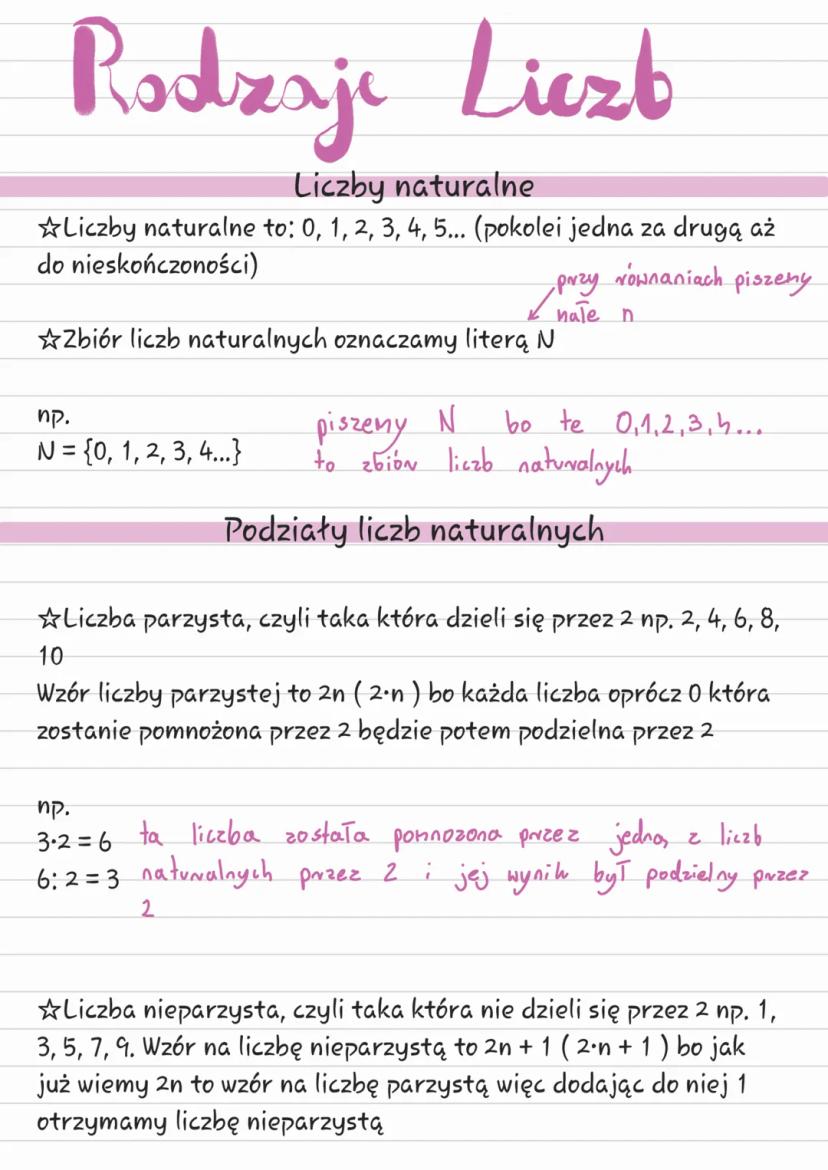 Rodzaje Liczb
Liczby naturalne
☆Liczby naturalne to: 0, 1, 2, 3, 4, 5... (pokolei jedna za drugą aż
do nieskończoności)
przy równaniach piszemy
małe n
☆Zbiór liczb naturalnych oznaczamy literą N
np.
N = {0, 1, 2, 3, 4...}
piszemy N bo te 0,1,2,3,4...
to zbiór liczb naturalnych
Podziały liczb naturalnych
☆Liczba parzysta, czyli taka która dzieli się przez 2 np. 2, 4, 6, 8,
10
Wzór liczby parzystej to 2n ( 2·n ) bo każda liczba oprócz 0 która
zostanie pomnożona przez 2 będzie potem podzielna przez 2
np.
3·2 = 6
6: 2 = 3
ta liczba została pomnozona przez jedną z liczb
naturalnych przez 2 i jej wynik był podzielny przez
2
☆Liczba nieparzysta, czyli taka która nie dzieli się przez 2 np. 1,
3, 5, 7, 9. Wzór na liczbę nieparzystą to 2n + 1 ( 2·n + 1 ) bo jak
już wiemy 2n to wzór na liczbę parzystą więc dodając do niej 1
otrzymamy liczbę nieparzystą